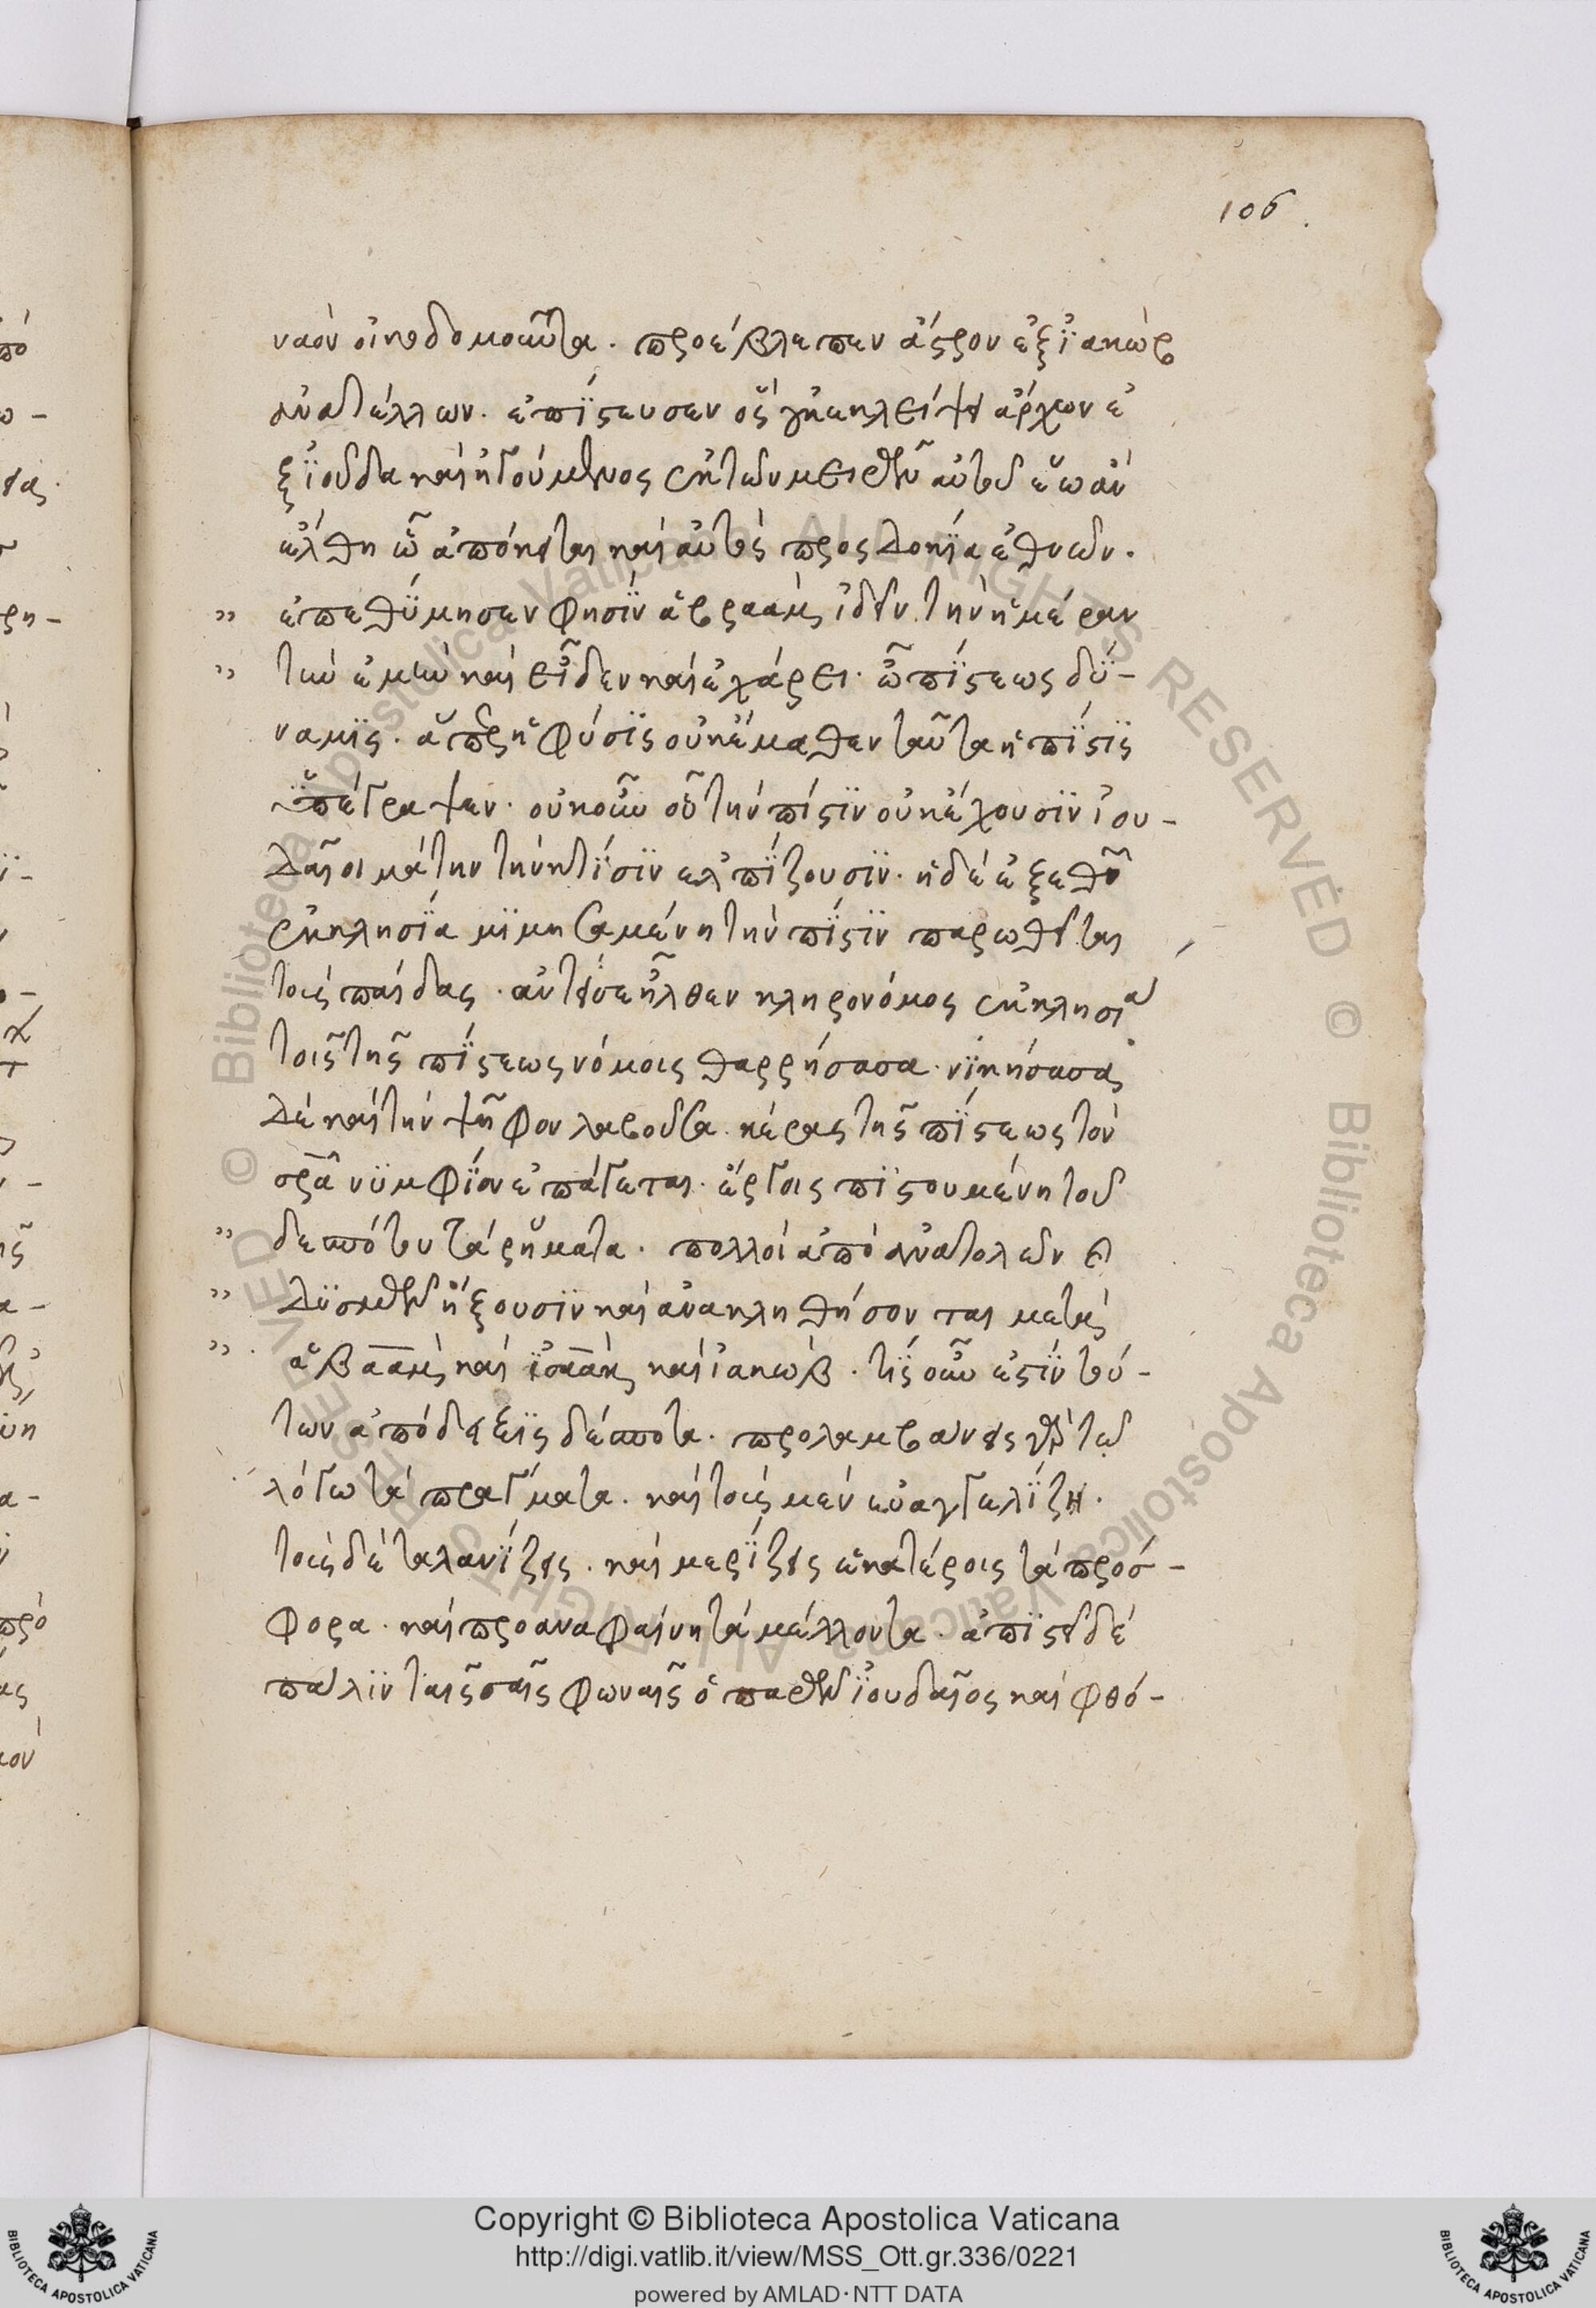 106
ναὸν οἰκοδομοῦντα. προέβλεπεν ἄστρον ἐξ ἰακὼβ
ἀνατέλλων. ἐπίστευσεν ὅτι οὐκ ἐκλείψει ἄρχων ἐ
ξ ἰούδα καὶ ἡγούμενος ἐκ τῶν μηρῶν αὐτοῦ ἕως ἂν
ἔλθῃ ὧ ἀπόκειται καὶ αὐτὸς προσδοκία ἐθνῶν.
ἐπεθύμησεν φησὶν ἀβραὰμ ἰδεῖν τὴν ἡμέραν
τὴν ἐμὴν καὶ εἶδεν καὶ ἐχάρει. ὦ πίστεως δύ-
ναμις. ἅπερ ἡ φύσις οὐκ ἔμαθεν ταῦτα ἡ πίστις
ὑπέγραψεν. οὐκοῦν οὖν τὴν πίστιν οὐκ ἔχουσιν ἰου-
δαῖοι μάτην τὴν κτίσιν ἐλπίζουσιν. ἡ δὲ ἐξ ἐθνῶν
ἐκκλησία μιμησαμένη τὴν πίστιν παρωθεῖται
τοὺς παῖδας. ἀντεισῆλθεν κληρονόμος ἐκκλησία
τοῖς τῆς πίστεως νόμοις θαρρήσασα. νικήσασα
δὲ καὶ τὴν ψῆφον λαβοῦσα. κέρας τῆς πίστεως τὸν
σρα νυμφίον ἐπάγεται. ἔργοις πιστουμένη τοῦ
δεσπότου τὰ ρήματα. πολλοὶ ἀπὸ ἀνατολῶν καὶ
δυσμῶν ἥξουσιν καὶ ἀνακληθήσονται μετὰ
ἀβαὰμ καὶ ἰσαὰκ καὶ ἰακώβ. τίς οὖν ἐστὶν τού-
των ἀπόδειξις δέσποτα. προλαμβάνεις γὰρ τῶ
λόγω τὰ πράγματα. καὶ τοὺς μὲν εὐαγγελίζη.
τοὺς δὲ ταλανίζεις. καὶ μερίζεις ἑκατέροις τὰ πρόσ-
φορα. καὶ προαναφαίνη τὰ μέλλοντα. ἀπιστεῖ δὲ
πάλιν ταῖς σαῖς φωναῖς ὁ παθῶν ἰουδαῖος καὶ φθό-
Copyright © Biblioteca Apostolica Vaticana
http://digi.vatlib.it/view/MSS_Ott.gr.336/0221
powered by AMLAD·NTT DATA